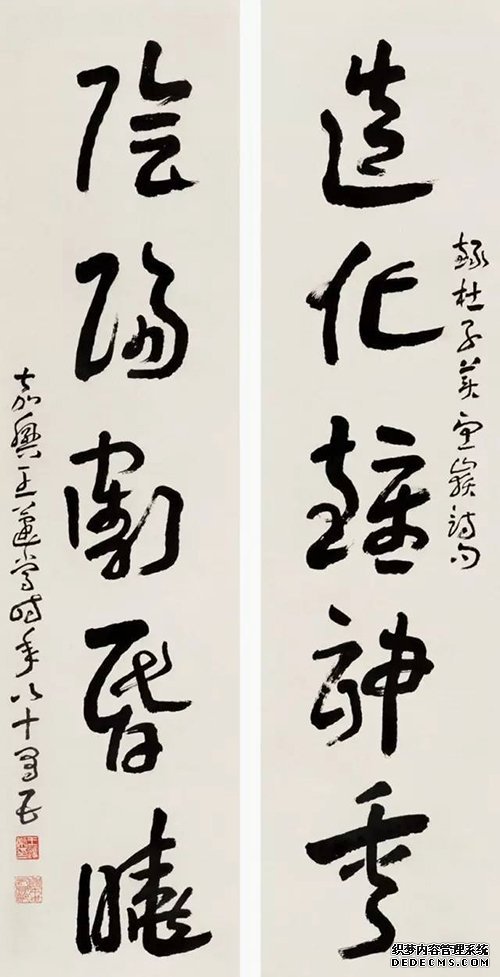 造化鍾神秀
録杜子美望嶽詩句
陰陽割昏曉
嘉興王蘧常時年八十有五
织梦内容管理系统
DEDECMS.COM